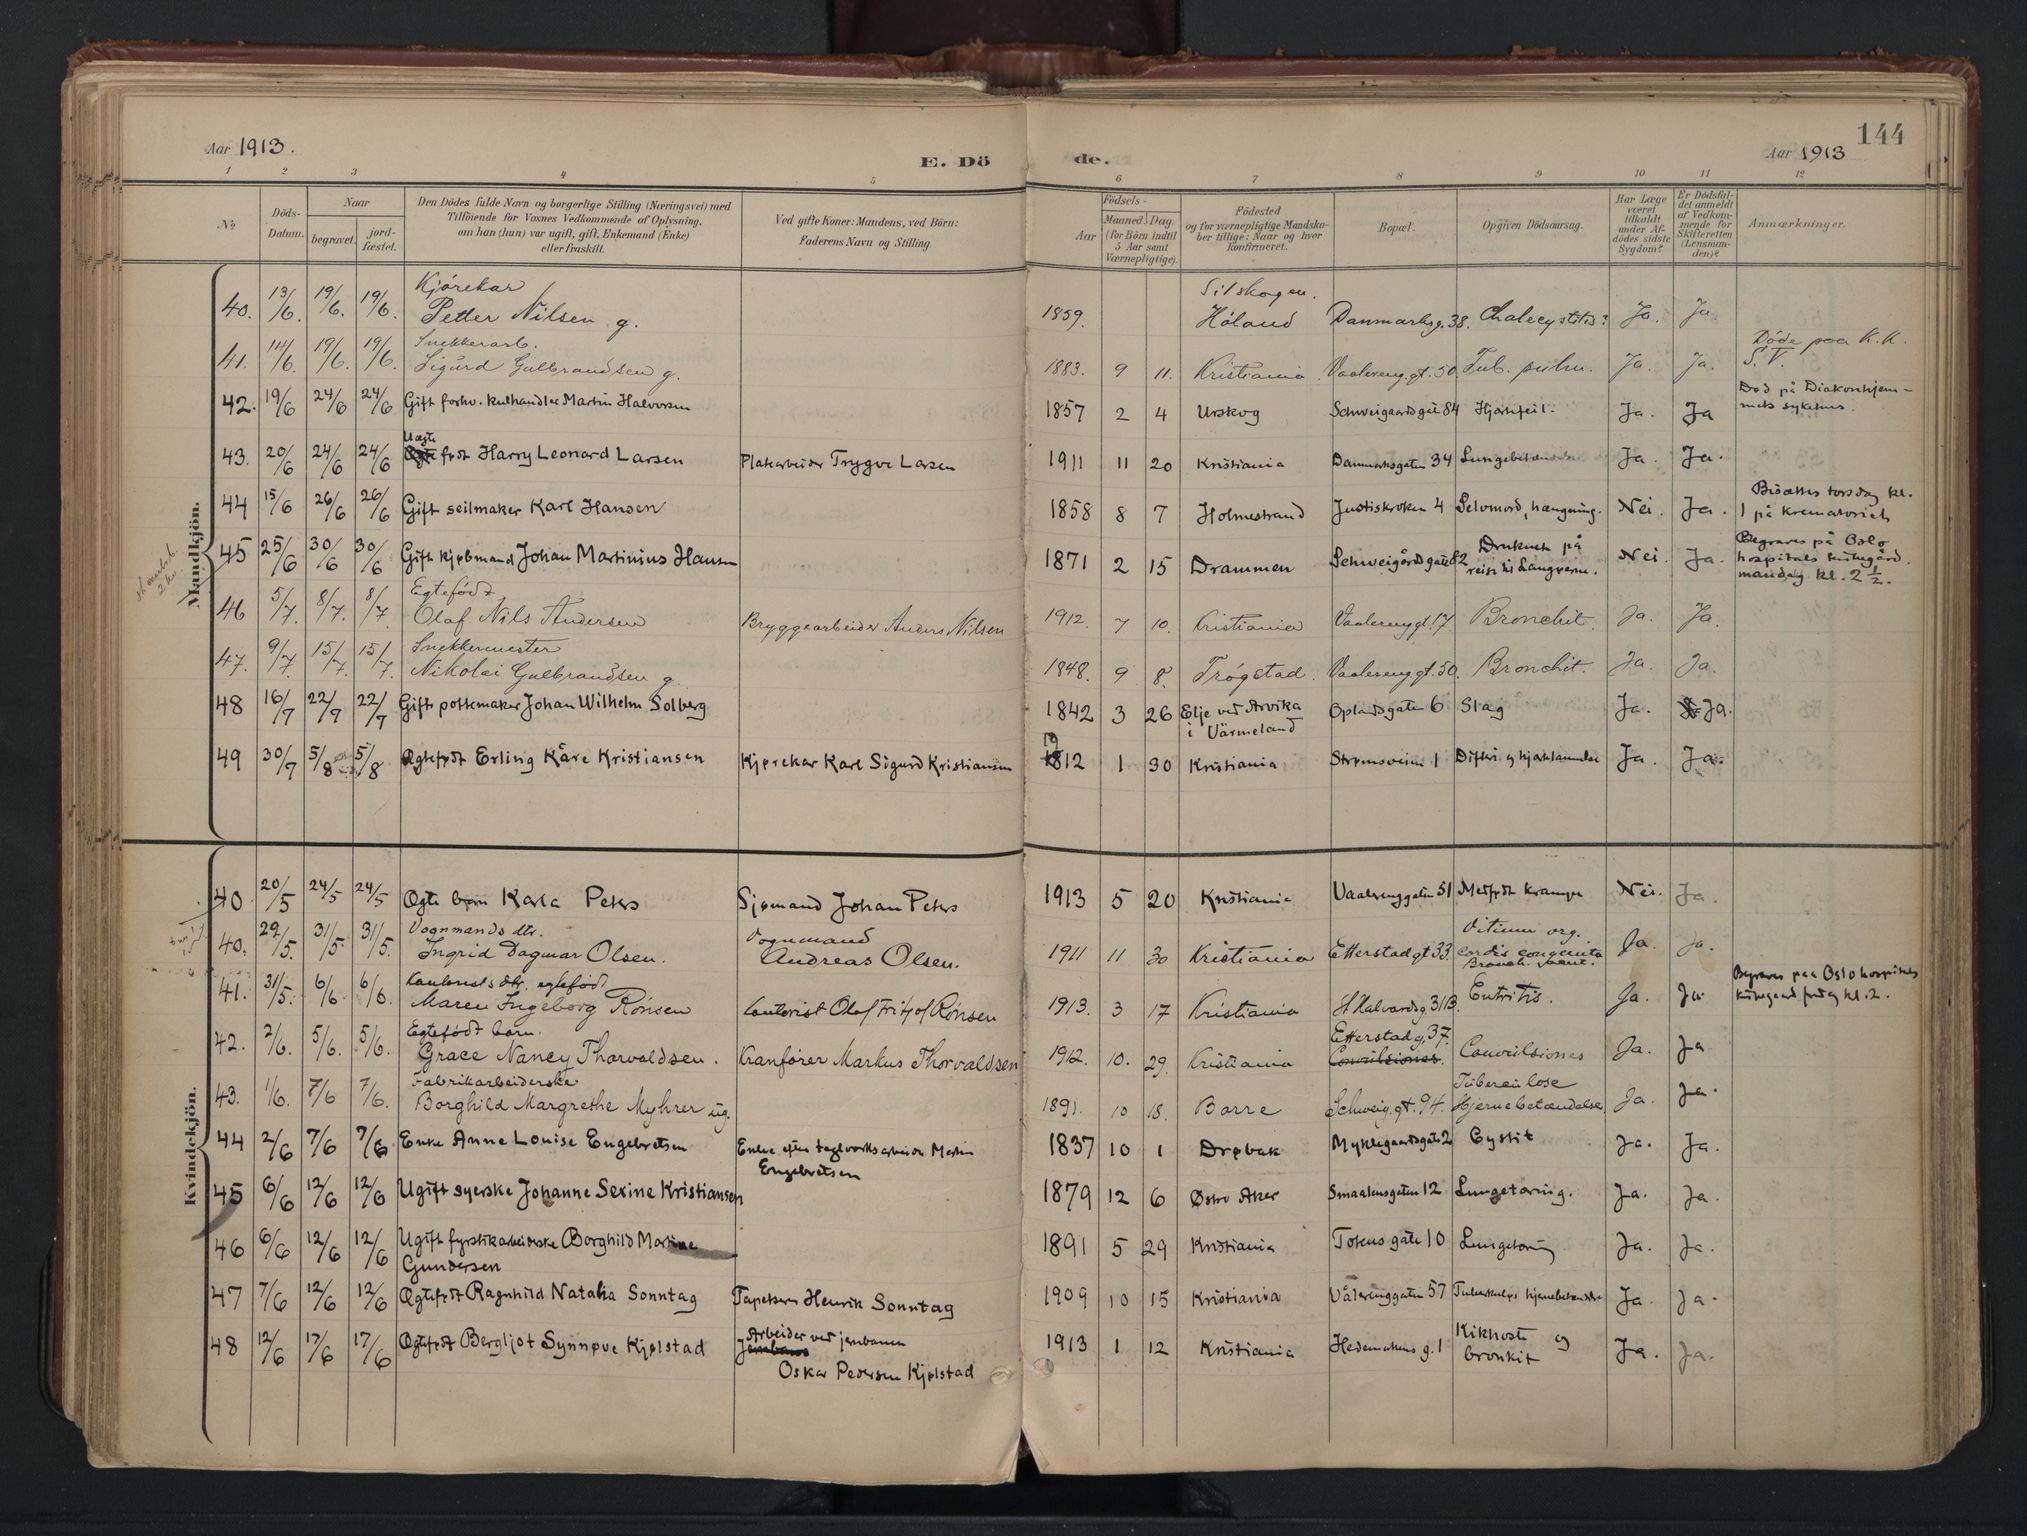 144
Aar 1913.
E. Dö
de.
Aar 1913
1 2 3 4 5 6 7 8 9 10 11 12
No
Döds-
Datum.
Naar
begravet.
jord-
fæstet.
Den Dödes fulde Navn og borgerlige Stilling (Næringsvei) med
Tilföiende for Voxnes Vedkommende af Oplysning,
om han (hun) var ugift, gift, Enkemand (Enke)
eller fraskilt.
Ved gifte Koner: Mandens, ved Börn:
Faderens Navn og Stilling.
Födsels-
Aar
Maaned.
Dag.
(for Börn indtil
5 Aar samt
Værnepligtige).
Födested
og for værnepligtige Mandska-
ber tillige: Naar og hvor
konfirmeret.
Bopæl.
Opgiven Dödsaarsag.
Har Læge
været
tilkaldt
under Af-
dödes sidste
Sygdom?
Er Dödsfal-
det anmeldt
af Vedkom-
mende for
Skifteretten
(Lensman-
den)?
Anmærkninger.
Mandkjön.
40. 13/6. 19/6. 19/6. Kjørekar
Petter Nilsen g. 1859. Höland Danmarksg. 38. Ja. Ja
41. 14/6. 19/6. 19/6. Snekkerarb.
Sigurd Gulbrandsen g. 1883. 9 11. Kristiania. Vaalereng.gt. 50. Tub. pulm. Ja. Ja. Döde paa K.K.
S.V.
42. 19/6 24/6 24/6 Gift forhv. kulhandler Martin Halvorsen 1857 2 4 Urskog Schweigaardsgate 84 Hjertefeil. Ja. Ja Død på Diakonhjem-
mets sykehus.
43. 20/6 24/6 24/6 Uægte
født Harry Leonard Larsen Platearbeider Trygve Larsen 1911 11 20 Kristiania Danmarksgaten 34 Lungebetændelse Ja. Ja.
44 15/6 26/6 26/6 Gift seilmaker Karl Hansen 1858 8 7 Holmestrand Justiskroken 4 Selvmord, hængning. Nei. Ja. Bisættes torsdag kl.
1 på krematoriet
45 25/6 30/6 30/6 Gift kjøbmand Johan Martinius Hansen 1871 2 15 Drammen Schweigårdsgate 82 Druknet på
reise til Langøerne. Nei. Ja. Begraves på Oslo
hospitals kirkegård
mandag kl. 2 1/2.
46 5/7 8/7. 8/7 Egtefödt
Olaf Nils Andersen Bryggearbeider Anders Nilsen 1912. 7 10. Kristiania Vaalerenggt. 17 Bronchit. Ja. Ja.
47. 9/7 15/7 15/7 Snekkermester
Nikolai Gulbrandsen g. 1848. 9 8. Trögstad. Vaalerenggt. 50. Bronchit. Ja. Ja.
48 16/7 22/7 22/7 Gift pottemaker Johan Wilhelm Solberg 1842 3 26 Elje ved Arvika
i Värmeland Oplandsgaten 6 Slag Ja. Ja.
49 30/7 5/8 5/8 Ægtefødt Erling Kåre Kristiansen Kjørekar Karl Sigurd Kristiansen 1912 1 30 Kristiania Strømsveien 1 Difteri og hjertelammelse Ja. Ja.
Kvindekjön.
40 20/5 24/5 24/5 Ægte barn Karla Peters Sjømand Johan Peters 1913 5 20 Kristiania Vaalerenggaten 51 Medfødt krampe Nei. Ja.
40. 29/5. 31/5. 31/5. Vognmands dtr.
Ingrid Dagmar Olsen. Vognmand
Andreas Olsen. 1911 11 30 Kristiania Etterstadgt 33. Vitium org.
cordis congenita
Ja. Ja.
41. 31/5. 6/6 6/6. Kontorists dtr. egtefödt
Maren Ingeborg Rönsen Kontorist Olaf Fritjof Rönsen 1913. 3 17 Kristiania St Halvardsg. 31 B. Entritis. Ja. Ja. Begraves paa Oslo hospitals
kirkegaard fredag kl. 2.
42. 2/6. 5/6. 5/6. Egtefödt barn.
Grace Nancy Thorvaldsen. Kranförer Markus Thorvaldsen 1912. 10. 29. Kristiania Etterstadg. 37.
Convulsiones Convulsiones Ja. Ja
43. 1/6. 7/6 7/6. Fabrikarbeiderske
Borghild Margrethe Myhrer ug. 1891. 10 18. Borre Schweig.gt. 94. Tuberculose
Hjernebetændelse Ja. Ja
44 2/6 7/6 7/6 Enke Anne Louise Engebretsen Enke efter teglverksarbeider Martin
Engebretsen 1837 10 1 Drøbak Myklegaardsgate 2 Cystit Ja. Ja.
45 6/6 12/6 12/6 Ugift syerske Johanne Sexine Kristiansen 1879 12 6 Østre Aker Smaalensgaten 12 Lungetæring. Ja. Ja.
46 6/6 12/6 12/6 Ugift fyrstikarbeiderske Borghild Martine
Gundersen 1891 5 29 Kristiania Totens gate 10 Lungetæring Ja. Ja.
47 7/6 12/6 12/6 Ægtefødt Ragnhild Natalia Sonntag Tapetserer Henrik Sonntag 1909 10 15 Kristiania Vålerenggaten 57 Tuberkuløs hjernebetændelse Ja. Ja.
48 12/6 17/6 17/6 Ægtefødt Bergljot Synnøve Kjølstad Arbeider ved jernbanen
Oskar Pedersen Kjølstad 1913 1 12 Kristiania Hedemarkens g. 1 Kikhoste og
bronkit Ja. Ja.